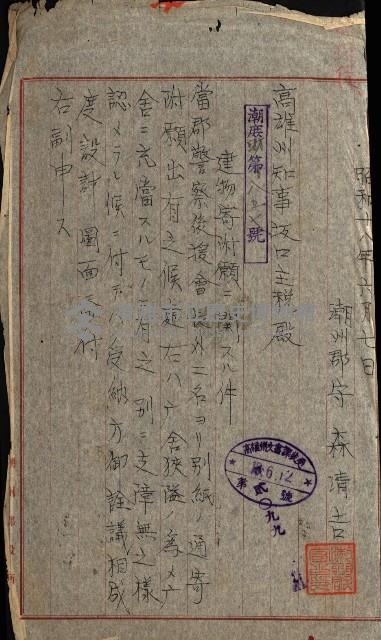 昭和十八年六月七日
潮州郡守 森清吉
高雄州知事坂口主税殿
潮庶第八 號
建物寄附願ニ關スル件
當郡警察後援會長外二名ヨリ別紙ノ通寄
附願出有之候處右ハ廳舍狹隘ノ為メ廳
舍ニ充當スルモノニ有之別ニ支障無之樣
認メラレ候ニ付テハ受納方御詮議相成
度設計圖面添付
右副申ス
高雄州文書課收受
6.12
第 貳〇九九 號